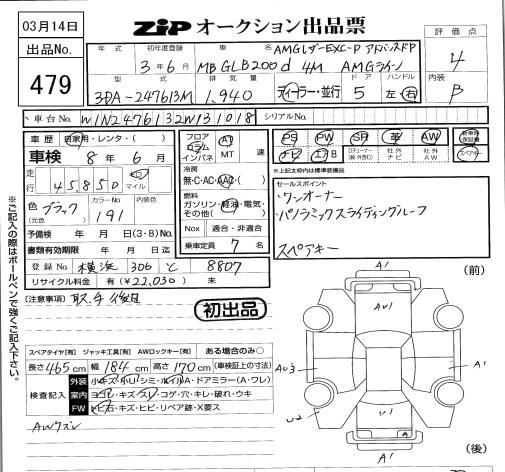 03月14日
ZIP オークション出品票
出品No.
479
年式
初年度登録
3年6月
車名
AMGレザーEXC-P アドバンスドP
MB GLB200d 4M AMGライン
評価点
4
内装
B
型式
3DA-247613M
排気量
1,940
ディーラー・並行
ドア
5
ハンドル
左・右
車台No. W1N2476132W131018
シリアルNo.
車歴 自家用・レンタ・( )
車検 8年6月
走行 45,850 km マイル
色(元色) ブラック
カラーNo. 191
内装色
予備検 年 月 日(3・8)No.
書類有効期限 年 月 日迄
登録No. 横浜 306 と 8807
リサイクル料金 有(¥22,030) 未
フロア ロー ム インパネ
AT MT 速
冷房
無・C・AC・AAC・( )
燃料
ガソリン・軽油・電気・その他( )
Nox 適合・非適合
乗車定員 7 名
PS PW SR 革 AW
ナビ エアB TVチューナー(純・社外) 社外ナビ 社外AW
新車時保証書
スペアキー
※上記太枠内は標準装備品
セールスポイント
・ワンオーナー
・パノラミックスライディングルーフ
スペアキー
[注意事項] 取・手後日
初出品
※ご記入の際はボールペンで強くご記入下さい。
スペアタイヤ[有] ジャッキ工具[有] AWロックキー[有] ある場合のみ○
長さ 465 cm 幅 184 cm 高さ 170 cm (車検証上の寸法)
検査記入
外装 小キズ・カリ・シミ・ルイルA・ドアミラー(A・ワレ)
室内 ヨゴレ・キズ・スレ・コゲ・穴・キレ・破れ・ウキ
FW トビ石・キズ・ヒビ・リペア跡・X要ス
AWウスレ
(前)
A1
AU1
AU3
A1
U2
U1
A
A1
(後)